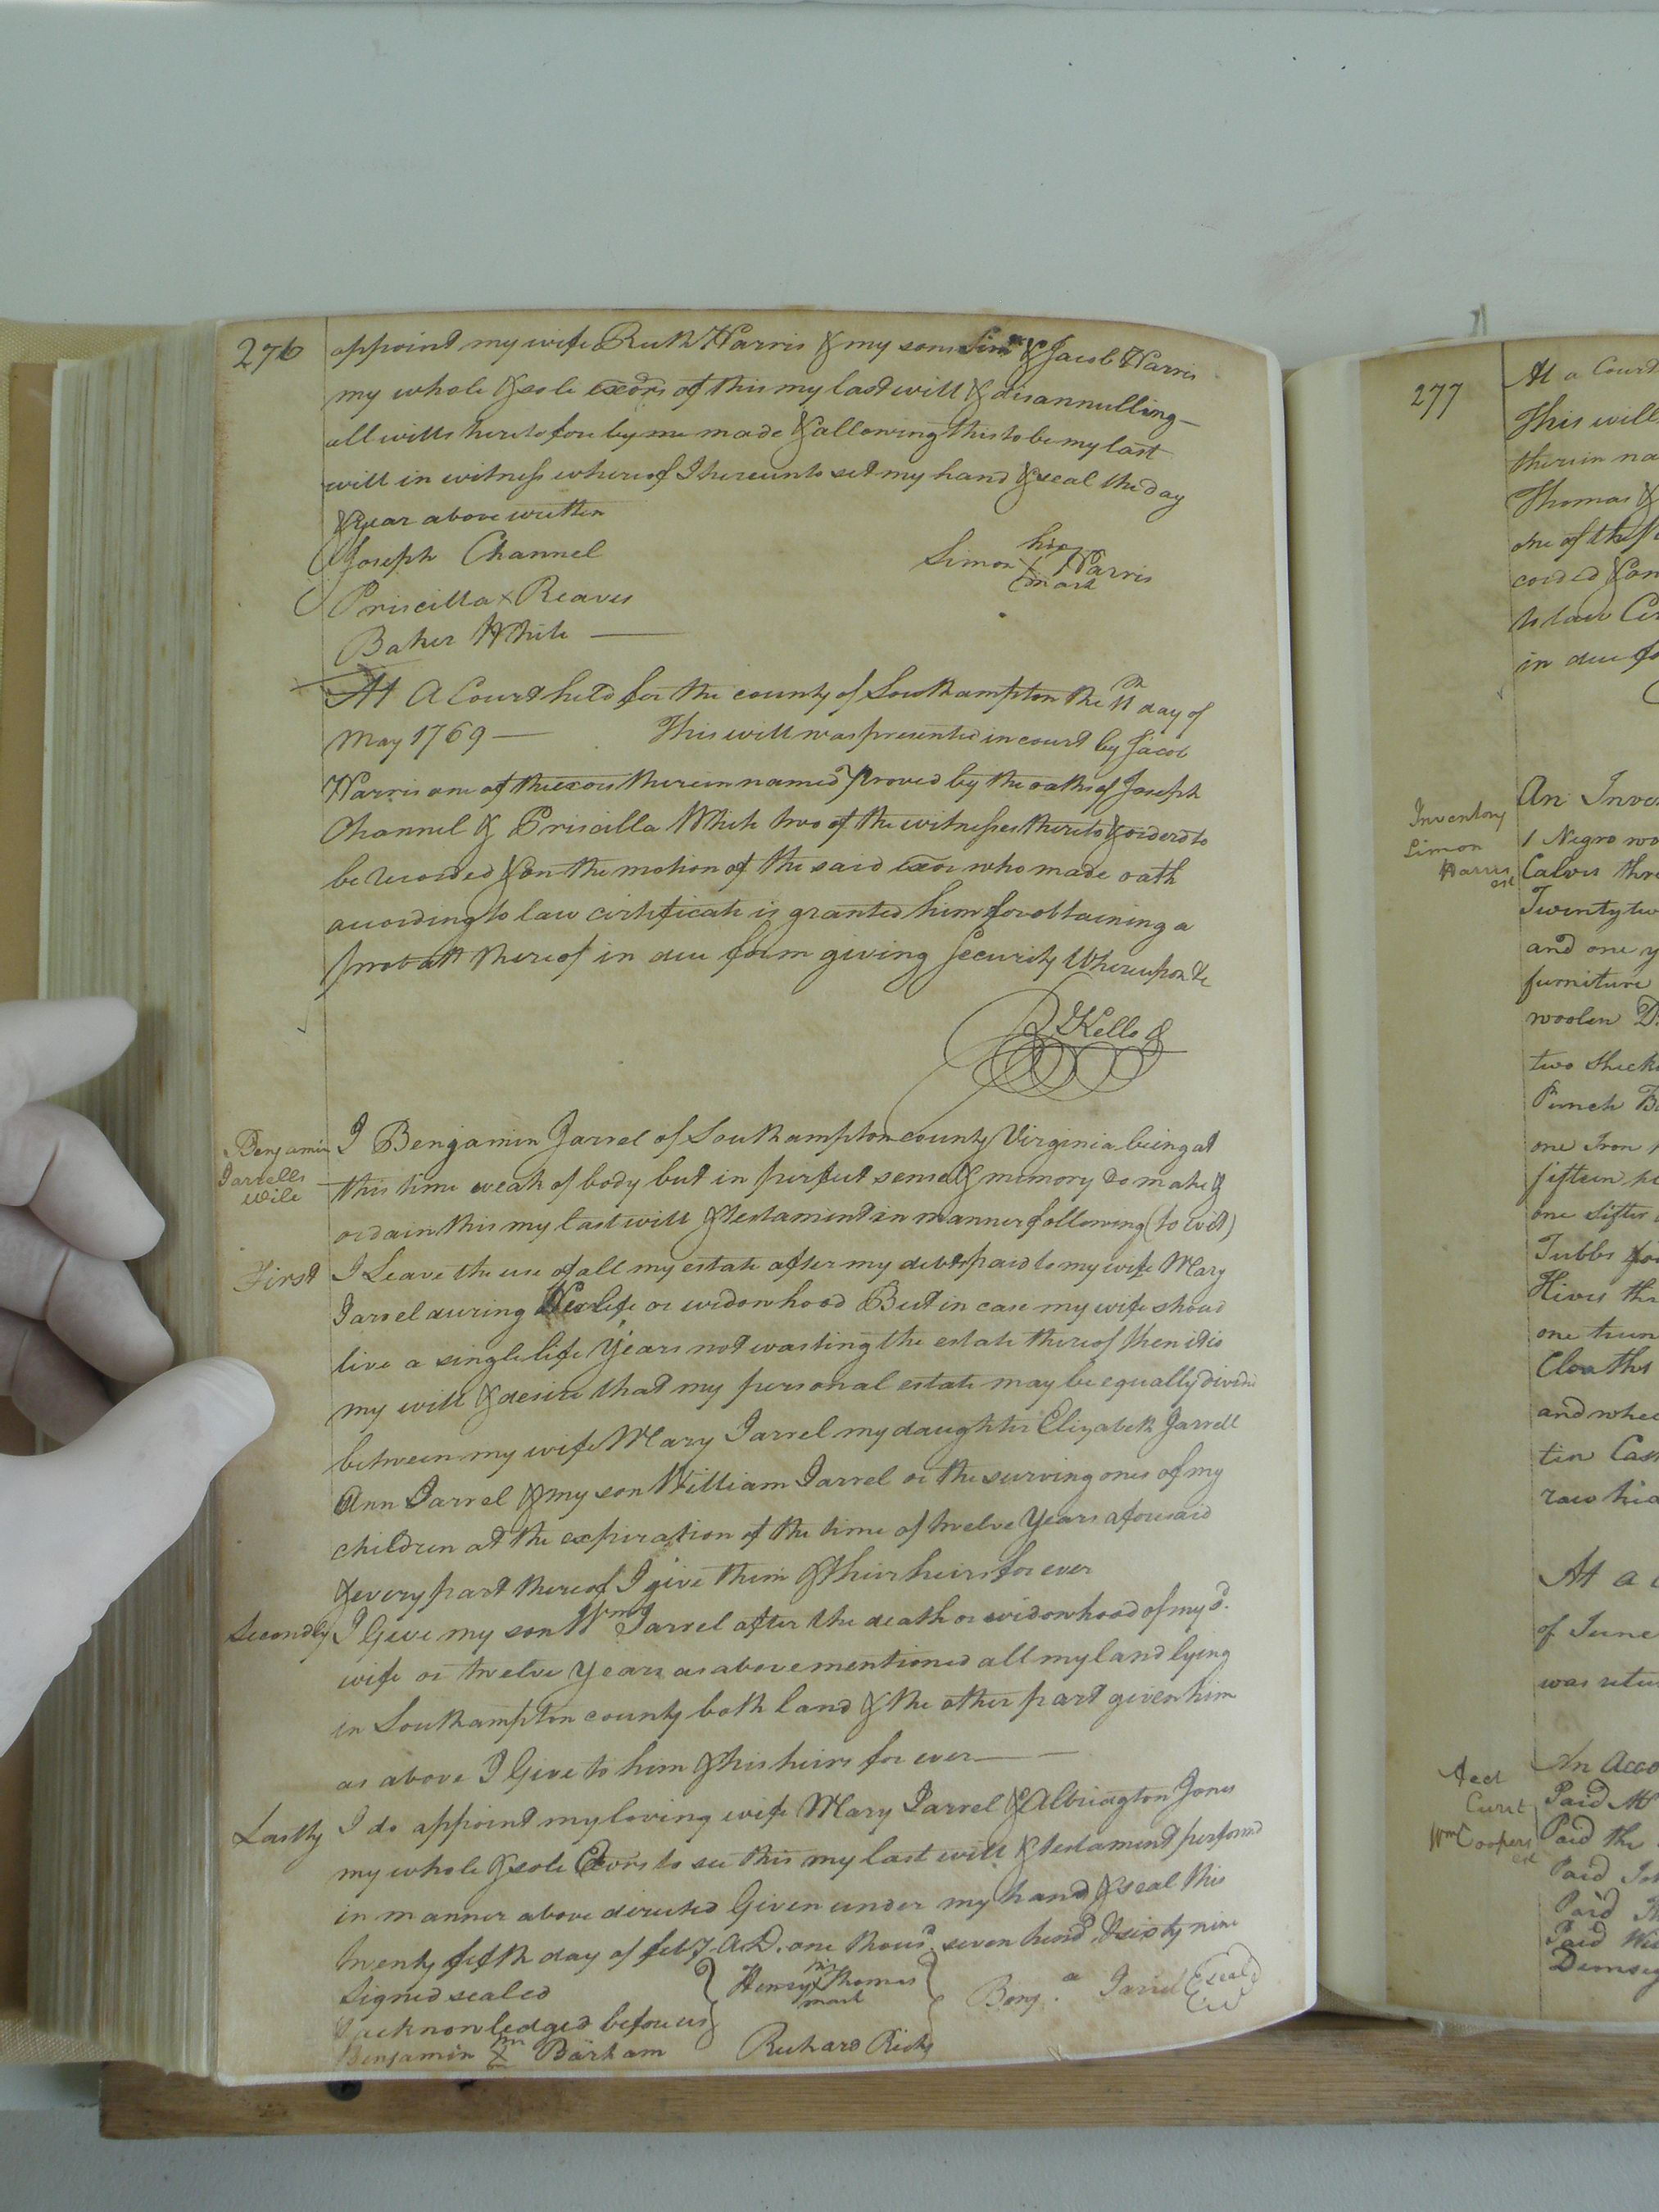 276
appoint my wife Ruth Harris & my sons Simn & Jacob Harris
my whole & sole exors of this my last will & disannulling
all wills heretofore by me made & allowing this to be my last
will in witness whereof I hereunto set my hand & seal the day
& year above written
Joseph Channel
his
Simon X Harris
mark
Priscilla X Reaves
Baker White
At A Court held for the county of Southampton the 11th day of
May 1769 — This will was presented in court by Jacob
Harris one of the exors therein named proved by the oaths of Joseph
Channel & Priscilla White two of the witnesses thereto & orderd to
be recorded & on the motion of the said exor who made oath
according to law certificate is granted him for obtaining a
probatt thereof in due form giving Security Whereupon &c
R Kello
Benjamin
Jarrells
Wile
I Benjamin Jarrel of Southampton county Virginia being at
this time weak of body but in perfect sense & memory do make &
ordain this my last will & testament in manner following (to wit)
First I Leave the use of all my estate after my debts paid to my wife Mary
Jarrel during Her life or widowhood But in case my wife shoud
live a single life Years not wasting the estate thereof then it is
my will & desire that my personal estate may be equally divided
between my wife Mary Jarrel my daughter Elizabeth Jarrell
Ann Jarrel & my son William Jarrel or the surving ones of my
children at the expiration of the time of twelve Years aforesaid
& every part thereof I give them & their heirs for ever
Secondly I Give my son Wm Jarrel after the death or widowhood of my sd.
wife or twelve Years as above mentioned all my land lying
in Southampton county both land & the other part given him
as above I Give to him & his heirs for ever
Lastly I do appoint my loving wife Mary Jarrel & Albrington Jones
my whole & sole Exors to see this my last will & testament performd
in manner above directed Given under my hand & seal this
twenty fifth day of feby A.D. one thousd. seven hund & sixty nine
Signed sealed
& acknowledged before us
Henry X Thomas
mark
Benja. Jarrel (seal)
Benjamin X Barham
Richard Ricks
277
At a Court
This will
therein na
Thomas &
one of the
corded & on
to law Cer
in due fo
Inventory
Simon
Harris
est
An Inven
1 Negro wo
Calves thre
Twenty two
and one y
furniture
woolen
two
Punch B
one Iron
fifteen
one Sifter
Tubbs fo
Hives thr
one trun
Cloaths
and whee
tin Can
raw hid
At a C
of June
was retu
Acct
Curt
Wm Coopers
est
An Acco
Paid
Paid the
Paid Joh
Paid Th
Paid Wi
Demsey